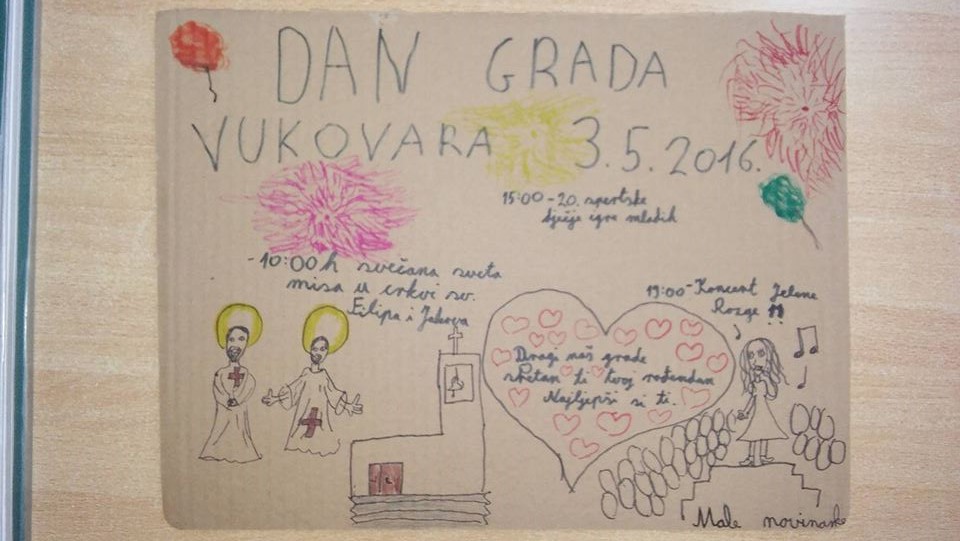 DAN GRADA
VUKOVARA 3.5.2016.
15:00-20. sportske
dječje igre mladih
-10:00h svečana sveta
misa u crkvi sv.
Filipa i Jakova
19:00-Koncert Jelene
Rozge !!
Dragi naš grade
sretan ti tvoj rođendan
Najljepši si ti.
Male novinarke